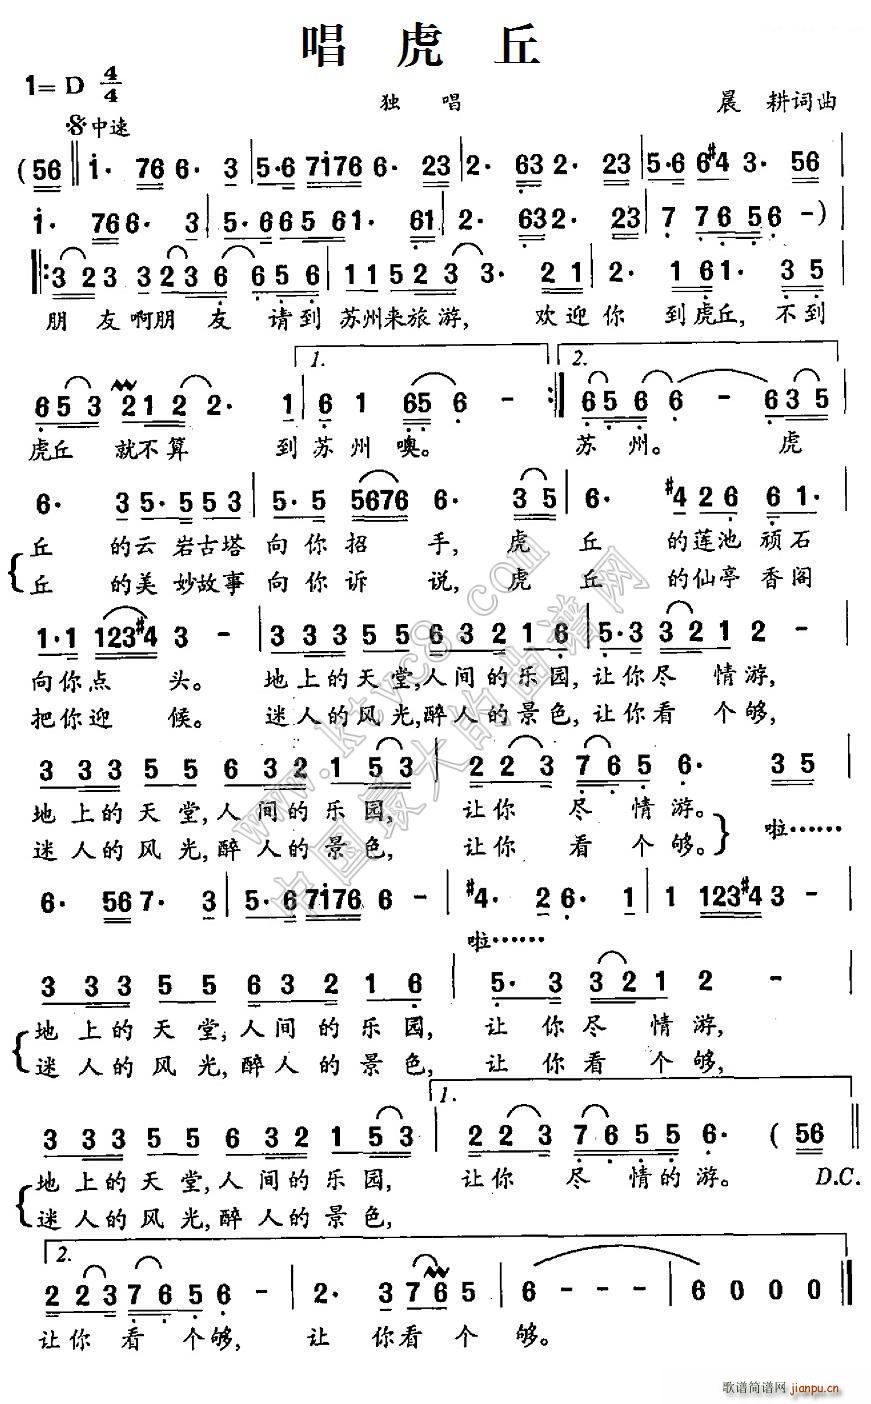 唱 虎 丘
1= D 4/4
独 唱
晨 耕词曲
中速
(56 i· 76 6· 3 5·6 7i76 6· 23 2· 63 2· 23 5·6 6#4 3· 35
i· 76 6· 3 5·6 65 61· 61 2· 63 2· 23 7 76 5 6 -)
3 23 3 23 6 6 5 6 1 1 5 2 3 3· 2 1 2· 1 61· 3 5
朋 友啊朋 友 请到 苏州来旅游, 欢迎你 到虎丘, 不到
1. 2.
6 5 3 2 1 2 2· 1 6 1 65 6 - 6 5 6 6 - 6 3 5
虎丘 就不算 到苏州噢。 苏 州。 虎
6· 3 5·5 5 3 5·5 5676 6· 3 5 6· #4 2 6 6 1·
丘 的云岩古塔向你招 手, 虎 丘 的莲池顽石
丘 的美妙故事向你诉 说, 虎 丘 的仙亭香阁
1·1 123#4 3 - 3 3 3 5 5 6 3 2 1 6 5·3 3 2 1 2 -
向你点 头。 地上的天堂,人间的乐园,让你尽 情游,
把你迎 候。 迷人的风光,醉人的景色,让你看 个够,
3 3 3 5 5 6 3 2 1 5 3 2 2 3 7 6 5 6· 3 5
地上的天堂,人间的乐园, 让你 尽 情游。
迷人的风光,醉人的景色, 让你 看 个够。 啦……
6· 56 7· 3 5·6 7i76 6 - #4· 2 6· 1 1 123#4 3 -
啦……
3 3 3 5 5 6 3 2 1 6 5· 3 3 2 1 2 -
地上的天堂,人间的乐园, 让你尽 情游,
迷人的风光,醉人的景色, 让你看 个够,
1.
3 3 3 5 5 6 3 2 1 5 3 2 2 3 7 6 5 5 6· (56
地上的天堂,人间的乐园, 让你 尽 情的游。 D.C.
迷人的风光,醉人的景色,
2.
2 2 3 7 6 5 6 - 2· 3 7 6 5 6 - - - 6 0 0 0
让你 看 个够, 让 你看 个 够。
www.ktvc8.com
中国最大的曲谱网
歌谱简谱网
jianpu.cn